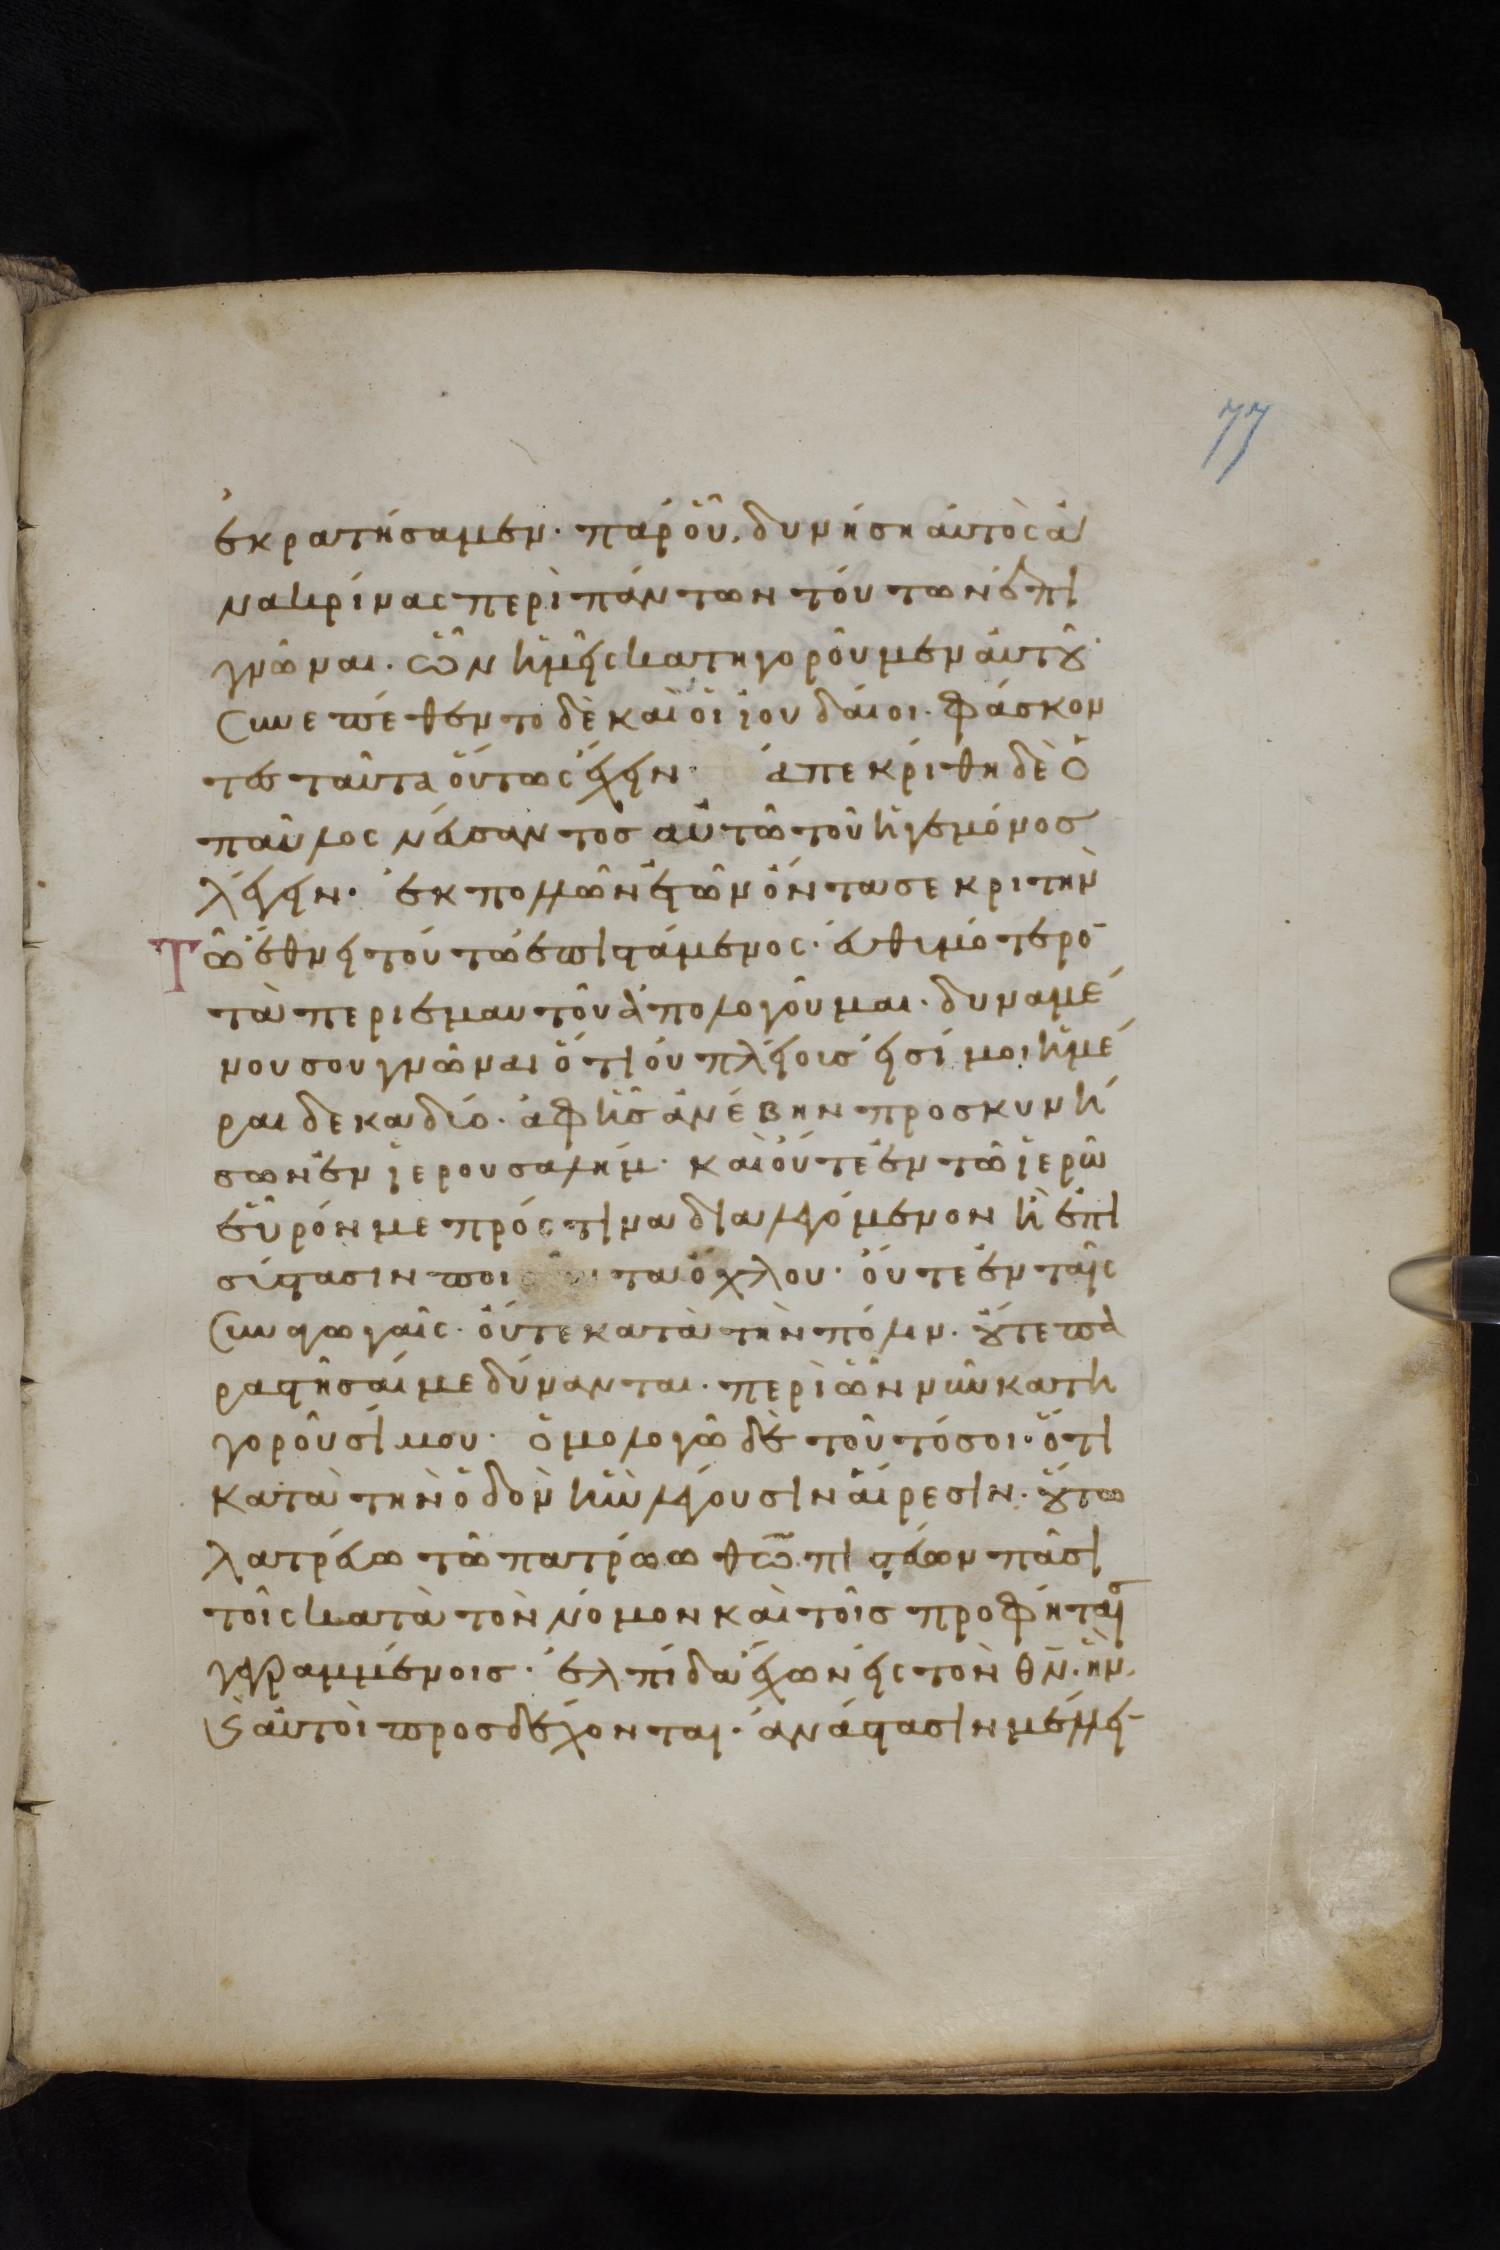 77
ἐκρατήσαμεν· παρ' οὗ, δυνήση αυτὸς ἀ
νακρίνας περὶ πάντων τούτων ἐπι
γνῶναι· ὧν ἡμεῖς κατηγοροῦμεν αὐτοῦ·
συνεπέθεντο δὲ καὶ οἱ ἰουδαίοι· φάσκον
τες ταῦτα οὕτως ἔχειν· ἀπεκρίθη δὲ ὁ
παῦλος νεύσαντος αὐτῶ τοῦ ἡγεμόνος
λέγειν· ἐκ πολλῶν ἐτῶν ὄντα σε κριτὴν
Τῶ ἔθνει τούτω ἐπιστάμενος· εὐθυμότερο
τὰ περὶ ἐμαυτοῦ ἀπολογοῦμαι· δυναμέ
νου σου γνῶναι ὅτι οὐ πλείους εἰσί μοι ἡμέ
ραι δεκαδύο· ἀφ ἧς ἀνέβην προσκυνή
σων ἐν ἱερουσαλήμ· καὶ οὔτε ἐν τῶ ἱερῶ
εὗρόν με πρός τινα διαλεγόμενον ἢ ἐπι
σύστασιν ποι τα ὄχλου· οὔτε ἐν ταῖς
συναγωγαῖς· οὔτε κατὰ τὴν πόλιν· οὔτε πα
ραστῆσαί με δύνανται· περὶ ὧν νῦν κατη
γοροῦσί μου· ὁμολογῶ δὲ τοῦτό σοι· ὅτι
κατὰ τὴν ὁδὸν ἣν λέγουσιν αἵρεσιν· οὕτω
λατρεύω τῶ πατρώω θῶ· πιστεύων πᾶσι
τοῖς κατὰ τὸν νόμον καὶ τοῖς προφήταις
γεγραμμένοις· ἐλπίδα ἔχων εἰς τὸν θν· ἣν
ϗ αὐτοὶ προσδέχονται· ἀνάστασιν μέλλει